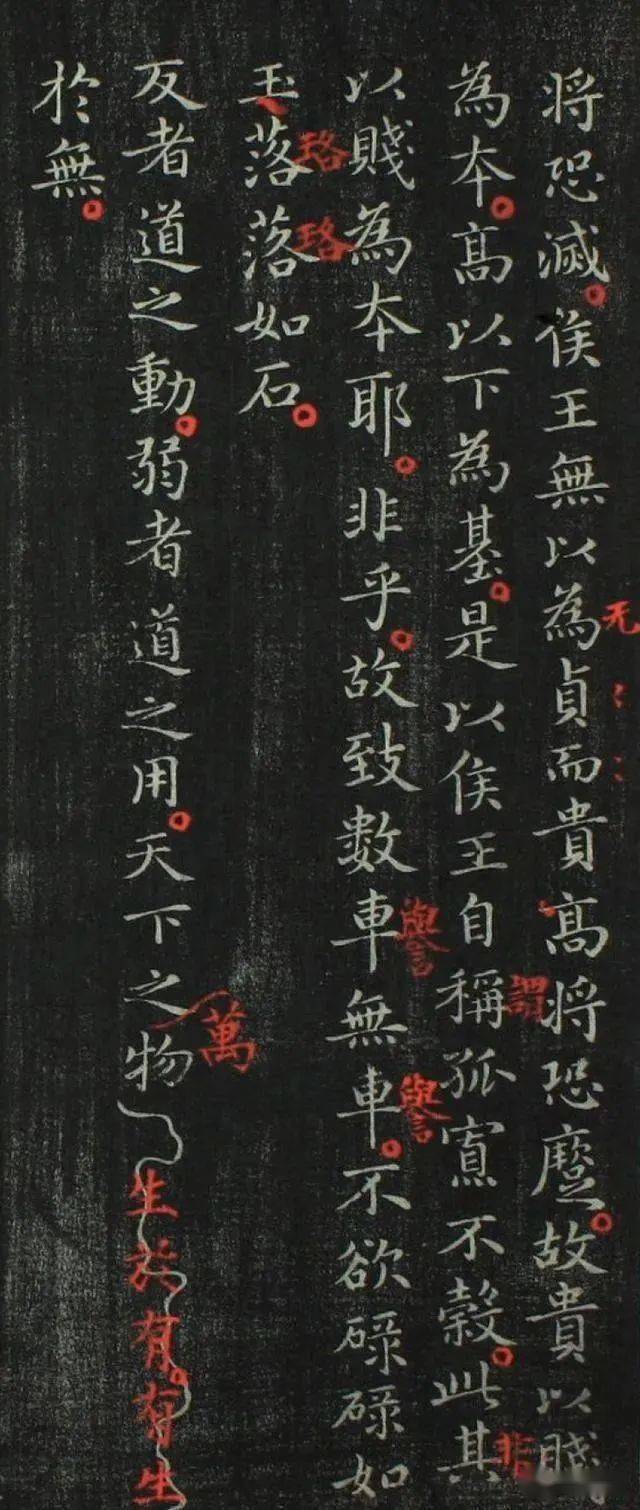 将恐滅。侯王無以為貞而貴高将恐蹷。故貴以賤
无
為本。高以下為基。是以侯王自稱孤寡不穀。此其
謂
非
以賤為本耶。非乎。故致數車無車。不欲碌碌如
譽
譽
玉落落如石。
珞珞
反者道之動。弱者道之用。天下之物生於有。有生
萬
於無。